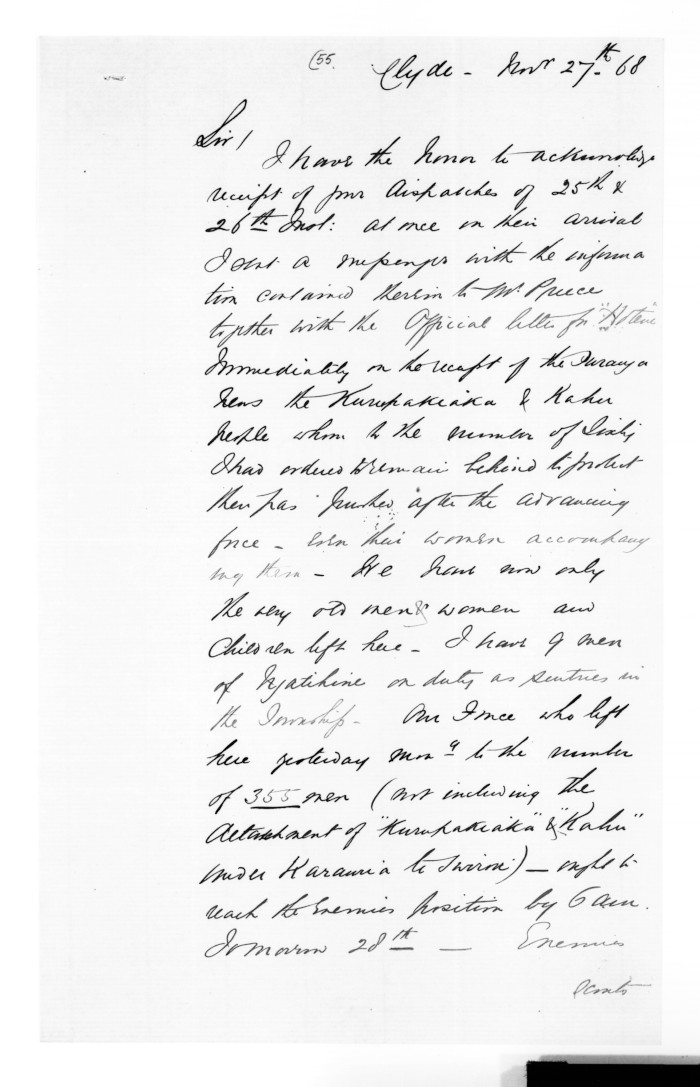 (55.
Clyde - Novr 27th 68
Sir /
I have the honor to acknowledge
receipt of your dispatches of 25th &
26th Inst: at once on their arrival
I sent a messenger with the informa
tion contained therein to Mr. Preece
together with the Official letter for "Hotene"
Immediately on the receipt of the Turanga
news the Kurupakiaka & Kahu
people whom to the number of Sixty
I had ordered to remain behind to protect
their pas pushed after the advancing
force - even their women accompany
ing them - We have now only
the very old men & women and
Children left here - I have 9 men
of Ngatihine on duty as sentries in
the Township - Our Force who left
here yesterday morng to the number
of 355 men (not including the
detachment of "Kurupakiaka" & "Kahu"
under Karauria te ) - ought to
reach the Enemies position by 6 am.
Tomorrow 28th - Enemies
scouts